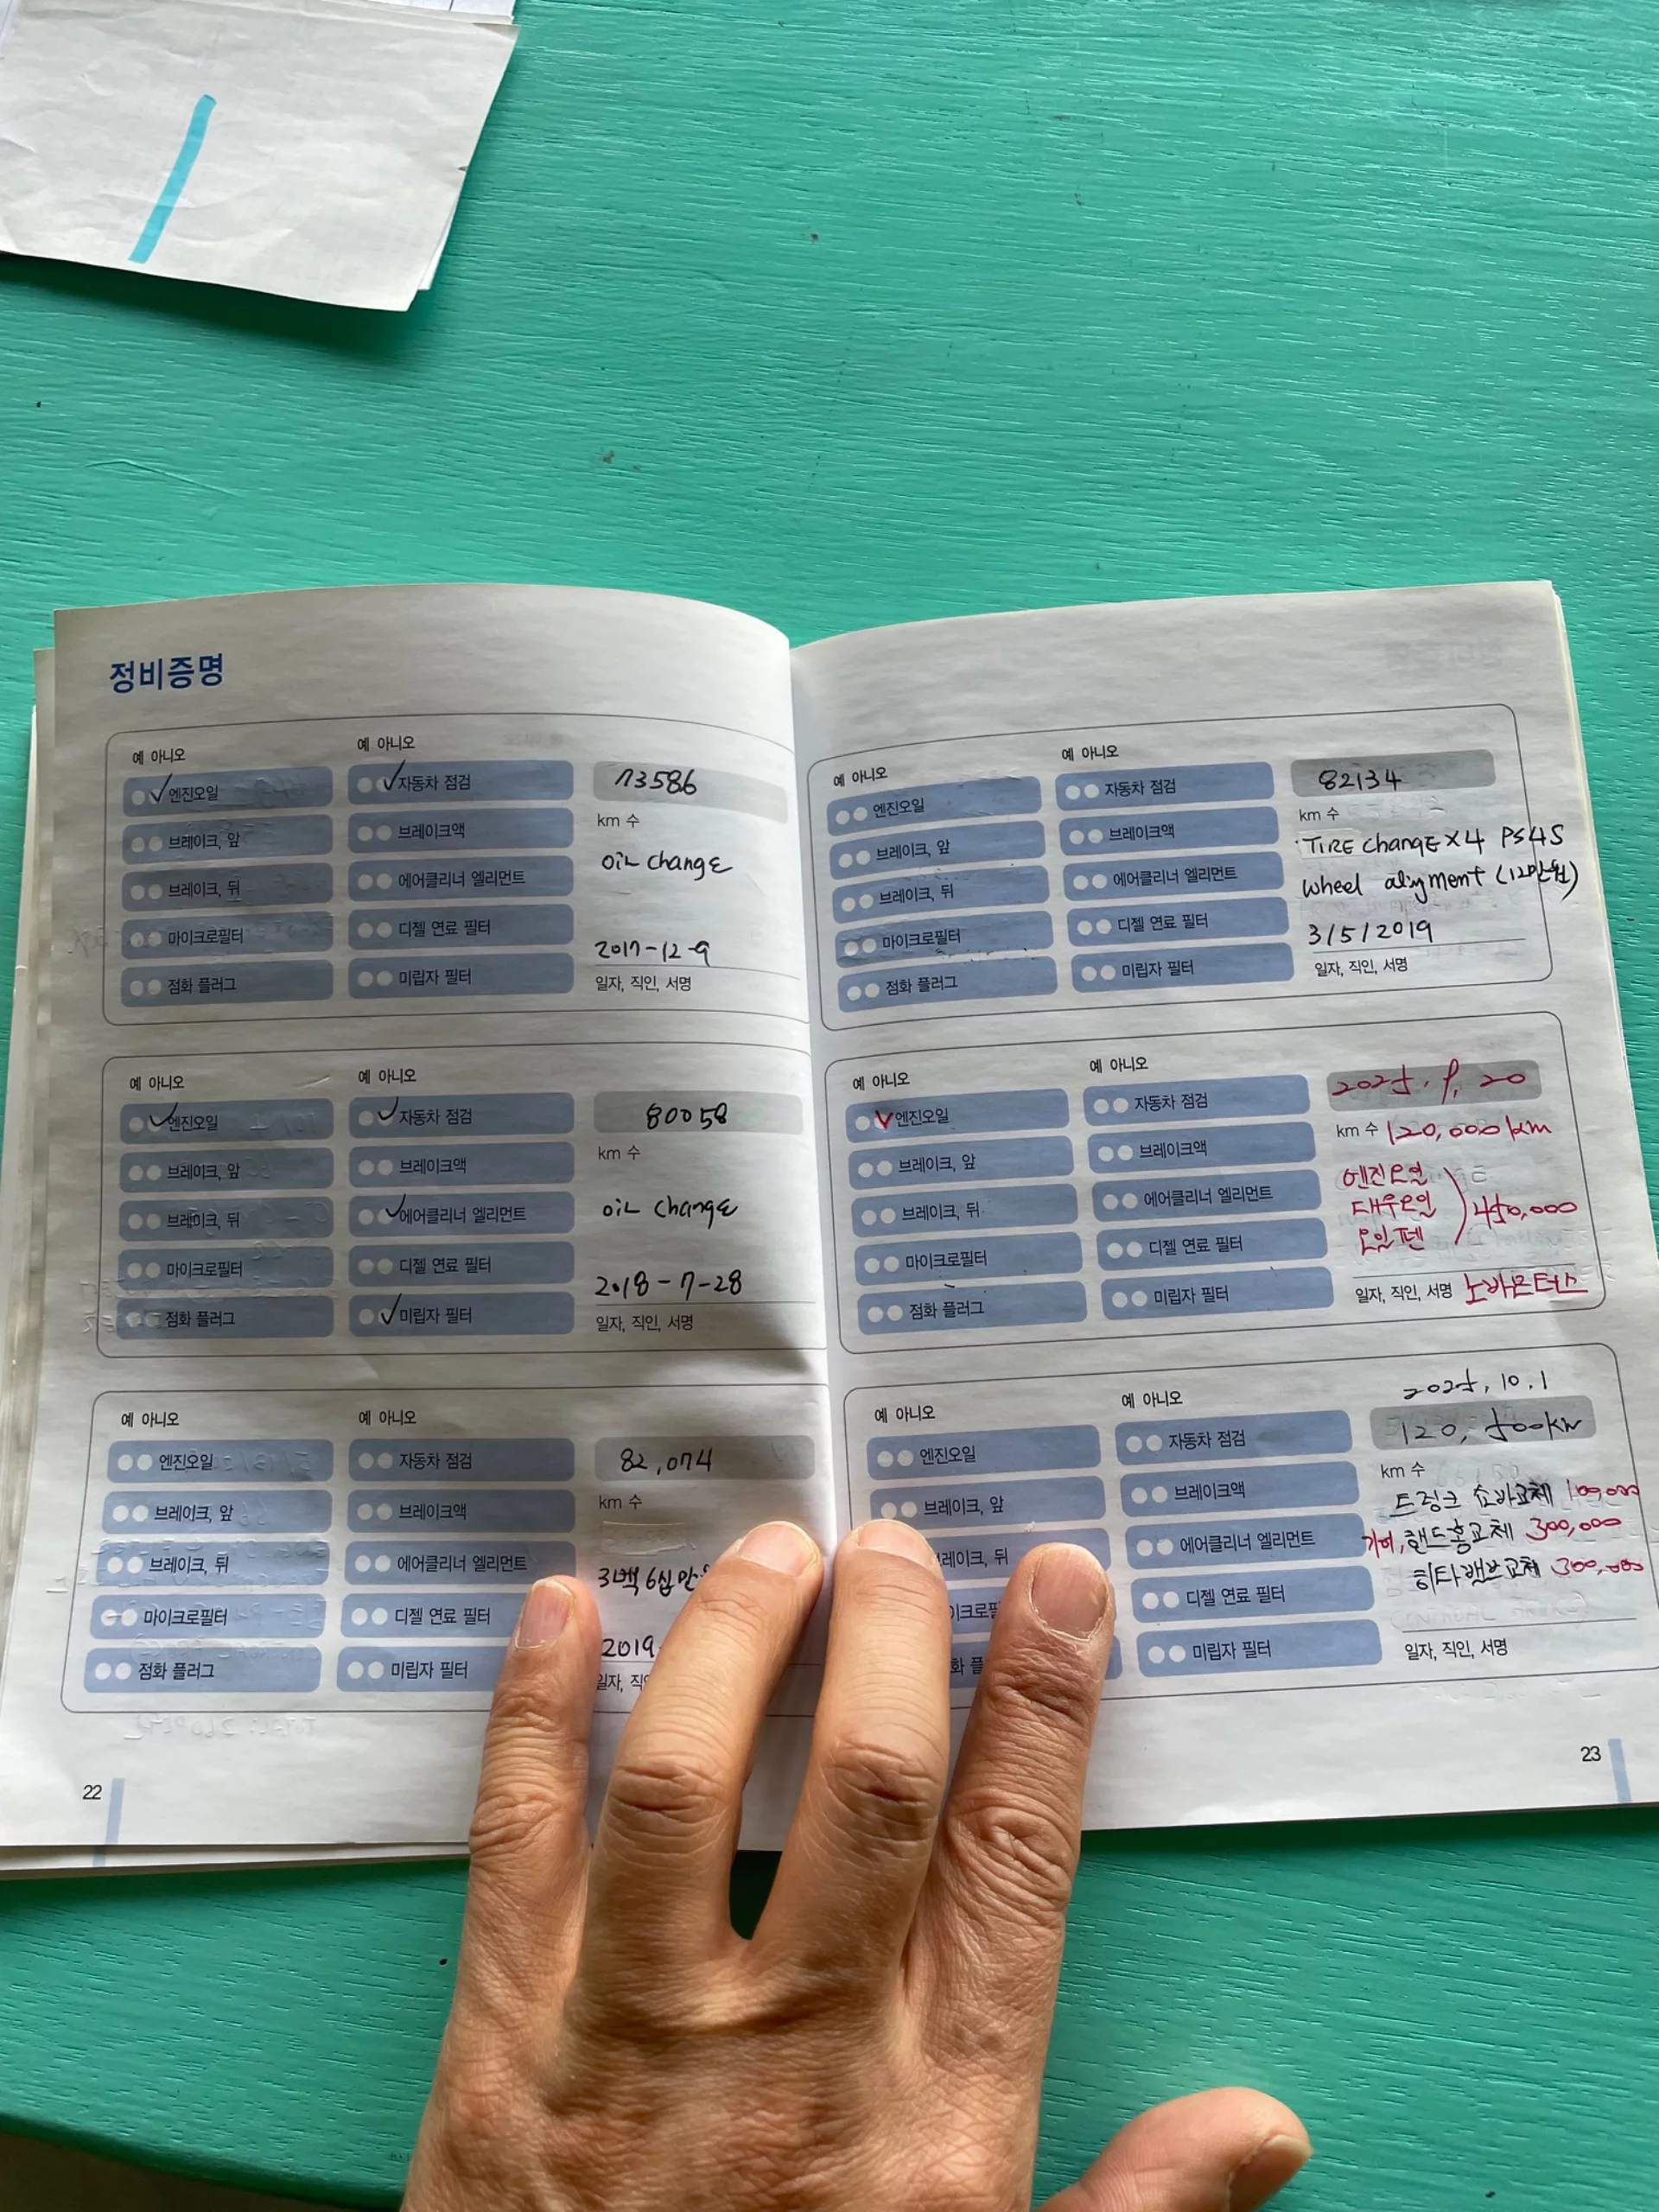 정비증명
예 아니오
예 아니오
엔진오일
자동차 점검
73586
브레이크, 앞
브레이크액
km 수
브레이크, 뒤
에어클리너 엘리먼트
oil change
마이크로필터
디젤 연료 필터
2017-12-9
점화 플러그
미립자 필터
일자, 직인, 서명
예 아니오
예 아니오
엔진오일
자동차 점검
80058
브레이크, 앞
브레이크액
km 수
브레이크, 뒤
에어클리너 엘리먼트
oil change
마이크로필터
디젤 연료 필터
2018-7-28
점화 플러그
미립자 필터
일자, 직인, 서명
예 아니오
예 아니오
엔진오일
자동차 점검
82,074
브레이크, 앞
브레이크액
km 수
브레이크, 뒤
에어클리너 엘리먼트
3백 6십 만
마이크로필터
디젤 연료 필터
2019
점화 플러그
미립자 필터
일자,
22
예 아니오
예 아니오
엔진오일
자동차 점검
82134
브레이크, 앞
브레이크액
km 수
TIRE changE x4 PS4S
브레이크, 뒤
에어클리너 엘리먼트
wheel alignment (12만원)
마이크로필터
디젤 연료 필터
3/5/2019
점화 플러그
미립자 필터
일자, 직인, 서명
예 아니오
예 아니오
엔진오일
자동차 점검
2025. 9. 20
브레이크, 앞
브레이크액
km 수 120,000km
브레이크, 뒤
에어클리너 엘리먼트
엔진오일
데우오일
오일펜
450,000
마이크로필터
디젤 연료 필터
점화 플러그
미립자 필터
일자, 직인, 서명 노바모터스
예 아니오
예 아니오
2025, 10. 1
엔진오일
자동차 점검
120, 500km
브레이크, 앞
브레이크액
km 수
트렁크 쇼바교체 100,000
에어클리너 엘리먼트
핸드홍교체 300,000
디젤 연료 필터
히타밸브교체 300,000
미립자 필터
일자, 직인, 서명
23